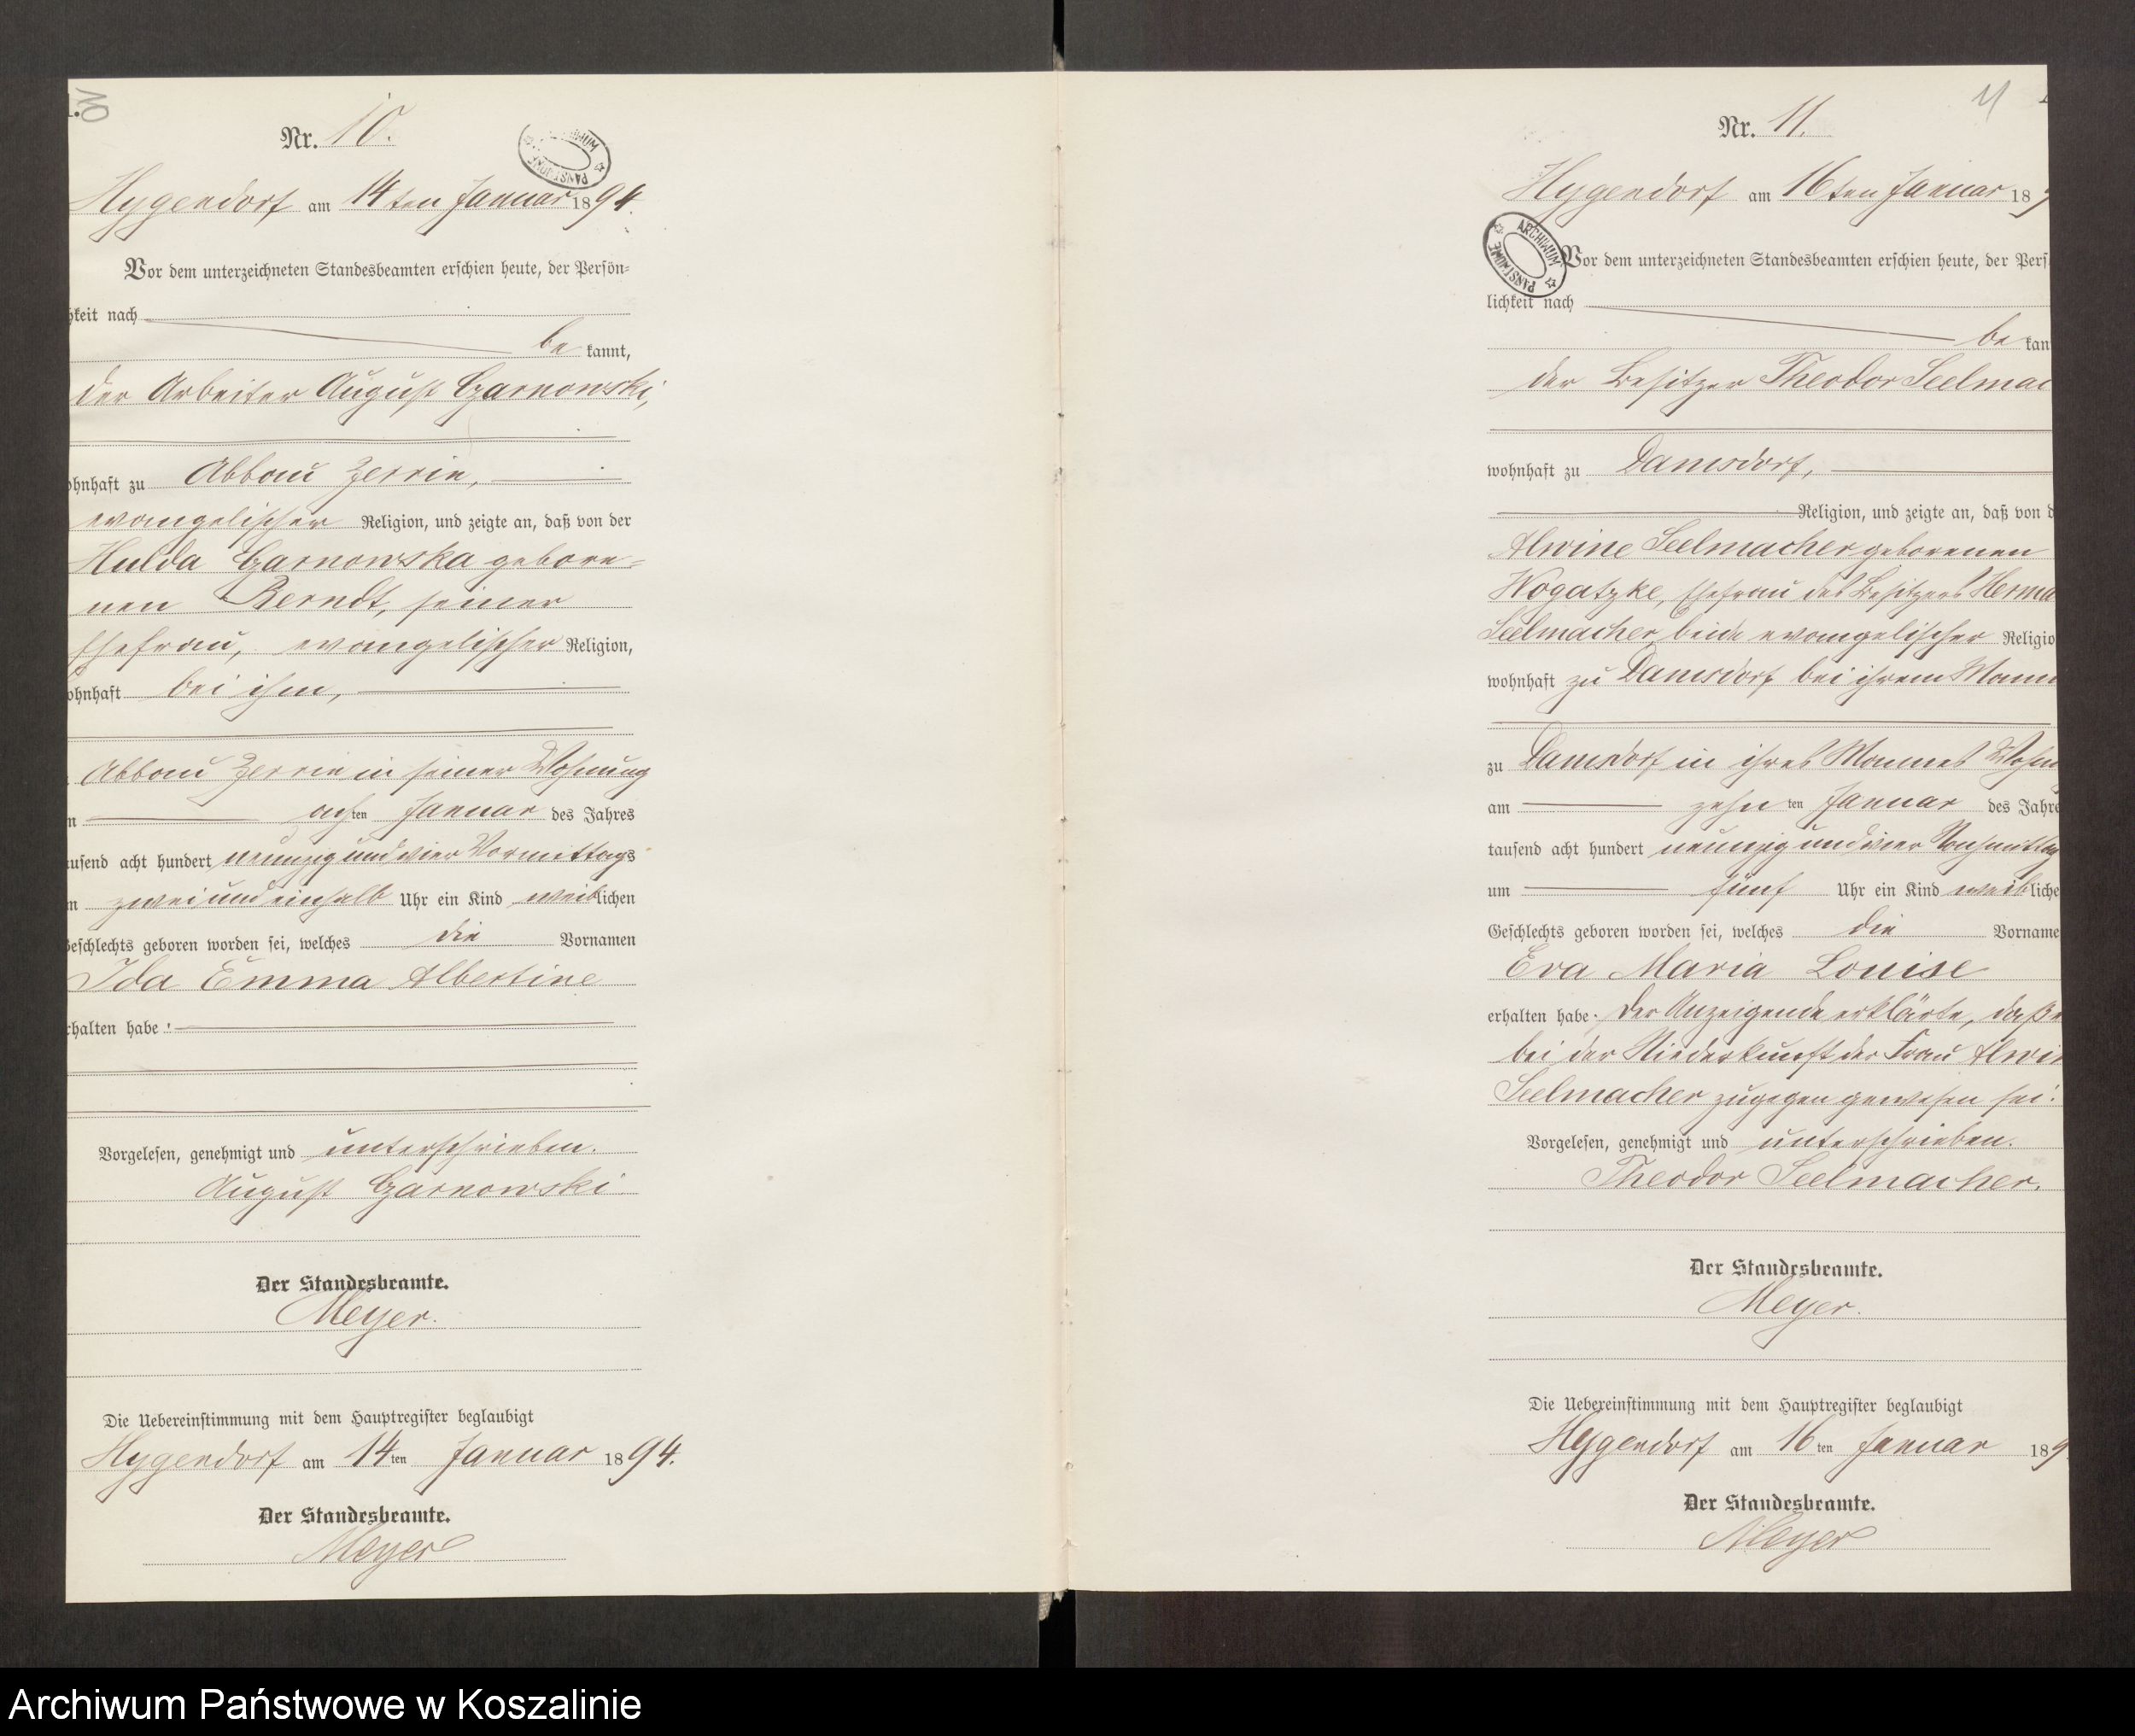 Nr. 10.
Hygendorf am 14ten Januar 1894.
Vor dem unterzeichneten Standesbeamten erschien heute, der Persön-
hkeit nach
be kannt,
der Arbeiter August Czarnowski,
ohnhaft zu Abbau Zerrin,
evangelischer Religion, und zeigte an, daß von der
Hulda Czarnowska gebore-
nen Berndt, seiner
Ehefrau, evangelischer Religion,
ohnhaft bei ihm,
Abbau Zerrin in seiner Wohnung
n achten Januar des Jahres
usend acht hundert neunzig und vier Vormittags
n zwei und einhalb Uhr ein Kind weiblichen
Geschlechts geboren worden sei, welches die Vornamen
Ida Emma Albertine
rhalten habe:
Vorgelesen, genehmigt und unterschrieben.
August Czarnowski
Der Standesbeamte.
Meyer.
Die Uebereinstimmung mit dem Hauptregister beglaubigt
Hygendorf am 14ten Januar 1894.
Der Standesbeamte.
Meyer
ARCHIWUM PAŃSTWOWE
Nr. 11.
Hygendorf am 16ten Januar 189
Vor dem unterzeichneten Standesbeamten erschien heute, der Pers
lichkeit nach
be kan
der Besitzer Theodor Seelmac
wohnhaft zu Damsdorf,
Religion, und zeigte an, daß von d
Alwine Seelmacher geborenen
Wogatzke, Ehefrau des Besitzers Herma
Seelmacher, beide evangelischer Religio
wohnhaft zu Damsdorf bei ihrem Mann
zu Damsdorf in ihres Mannes Wohnu
am zehnten Januar des Jahre
tausend acht hundert neunzig und vier Nachmittag
um fünf Uhr ein Kind weibliche
Geschlechts geboren worden sei, welches die Vorname
Eva Maria Louise
erhalten habe. Der Anzeigende erklärte, daß e
bei der Niederkunft der Frau Alwin
Seelmacher zugegen gewesen sei.
Vorgelesen, genehmigt und unterschrieben.
Theodor Seelmacher.
Der Standesbeamte.
Meyer.
Die Uebereinstimmung mit dem Hauptregister beglaubigt
Hygendorf am 16ten Januar 189
Der Standesbeamte.
Meyer
Archiwum Państwowe w Koszalinie